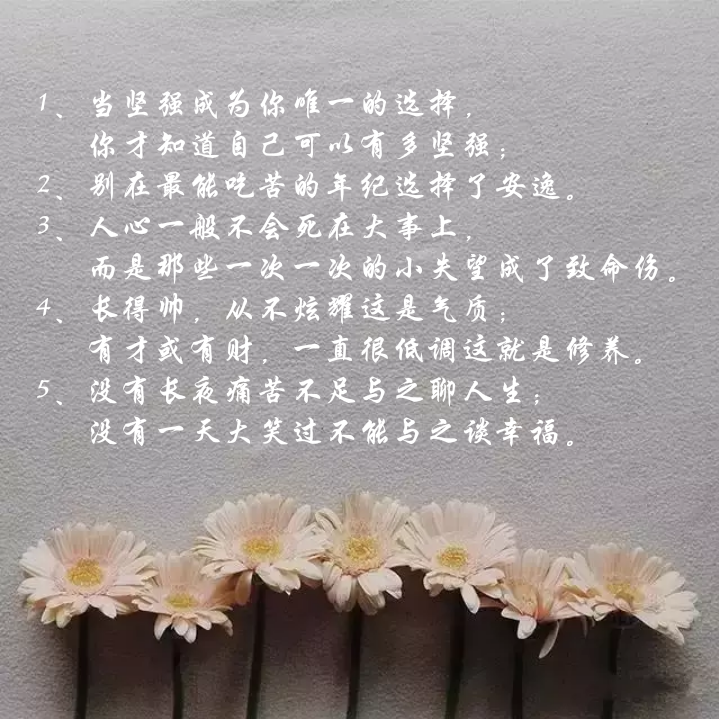 1、当坚强成为你唯一的选择，
你才知道自己可以有多坚强；
2、别在最能吃苦的年纪选择了安逸。
3、人心一般不会死在大事上，
而是那些一次一次的小失望成了致命伤。
4、长得帅，从不炫耀这是气质；
有才或有财，一直很低调这就是修养。
5、没有长夜痛苦不足与之聊人生；
没有一天大笑过不能与之谈幸福。